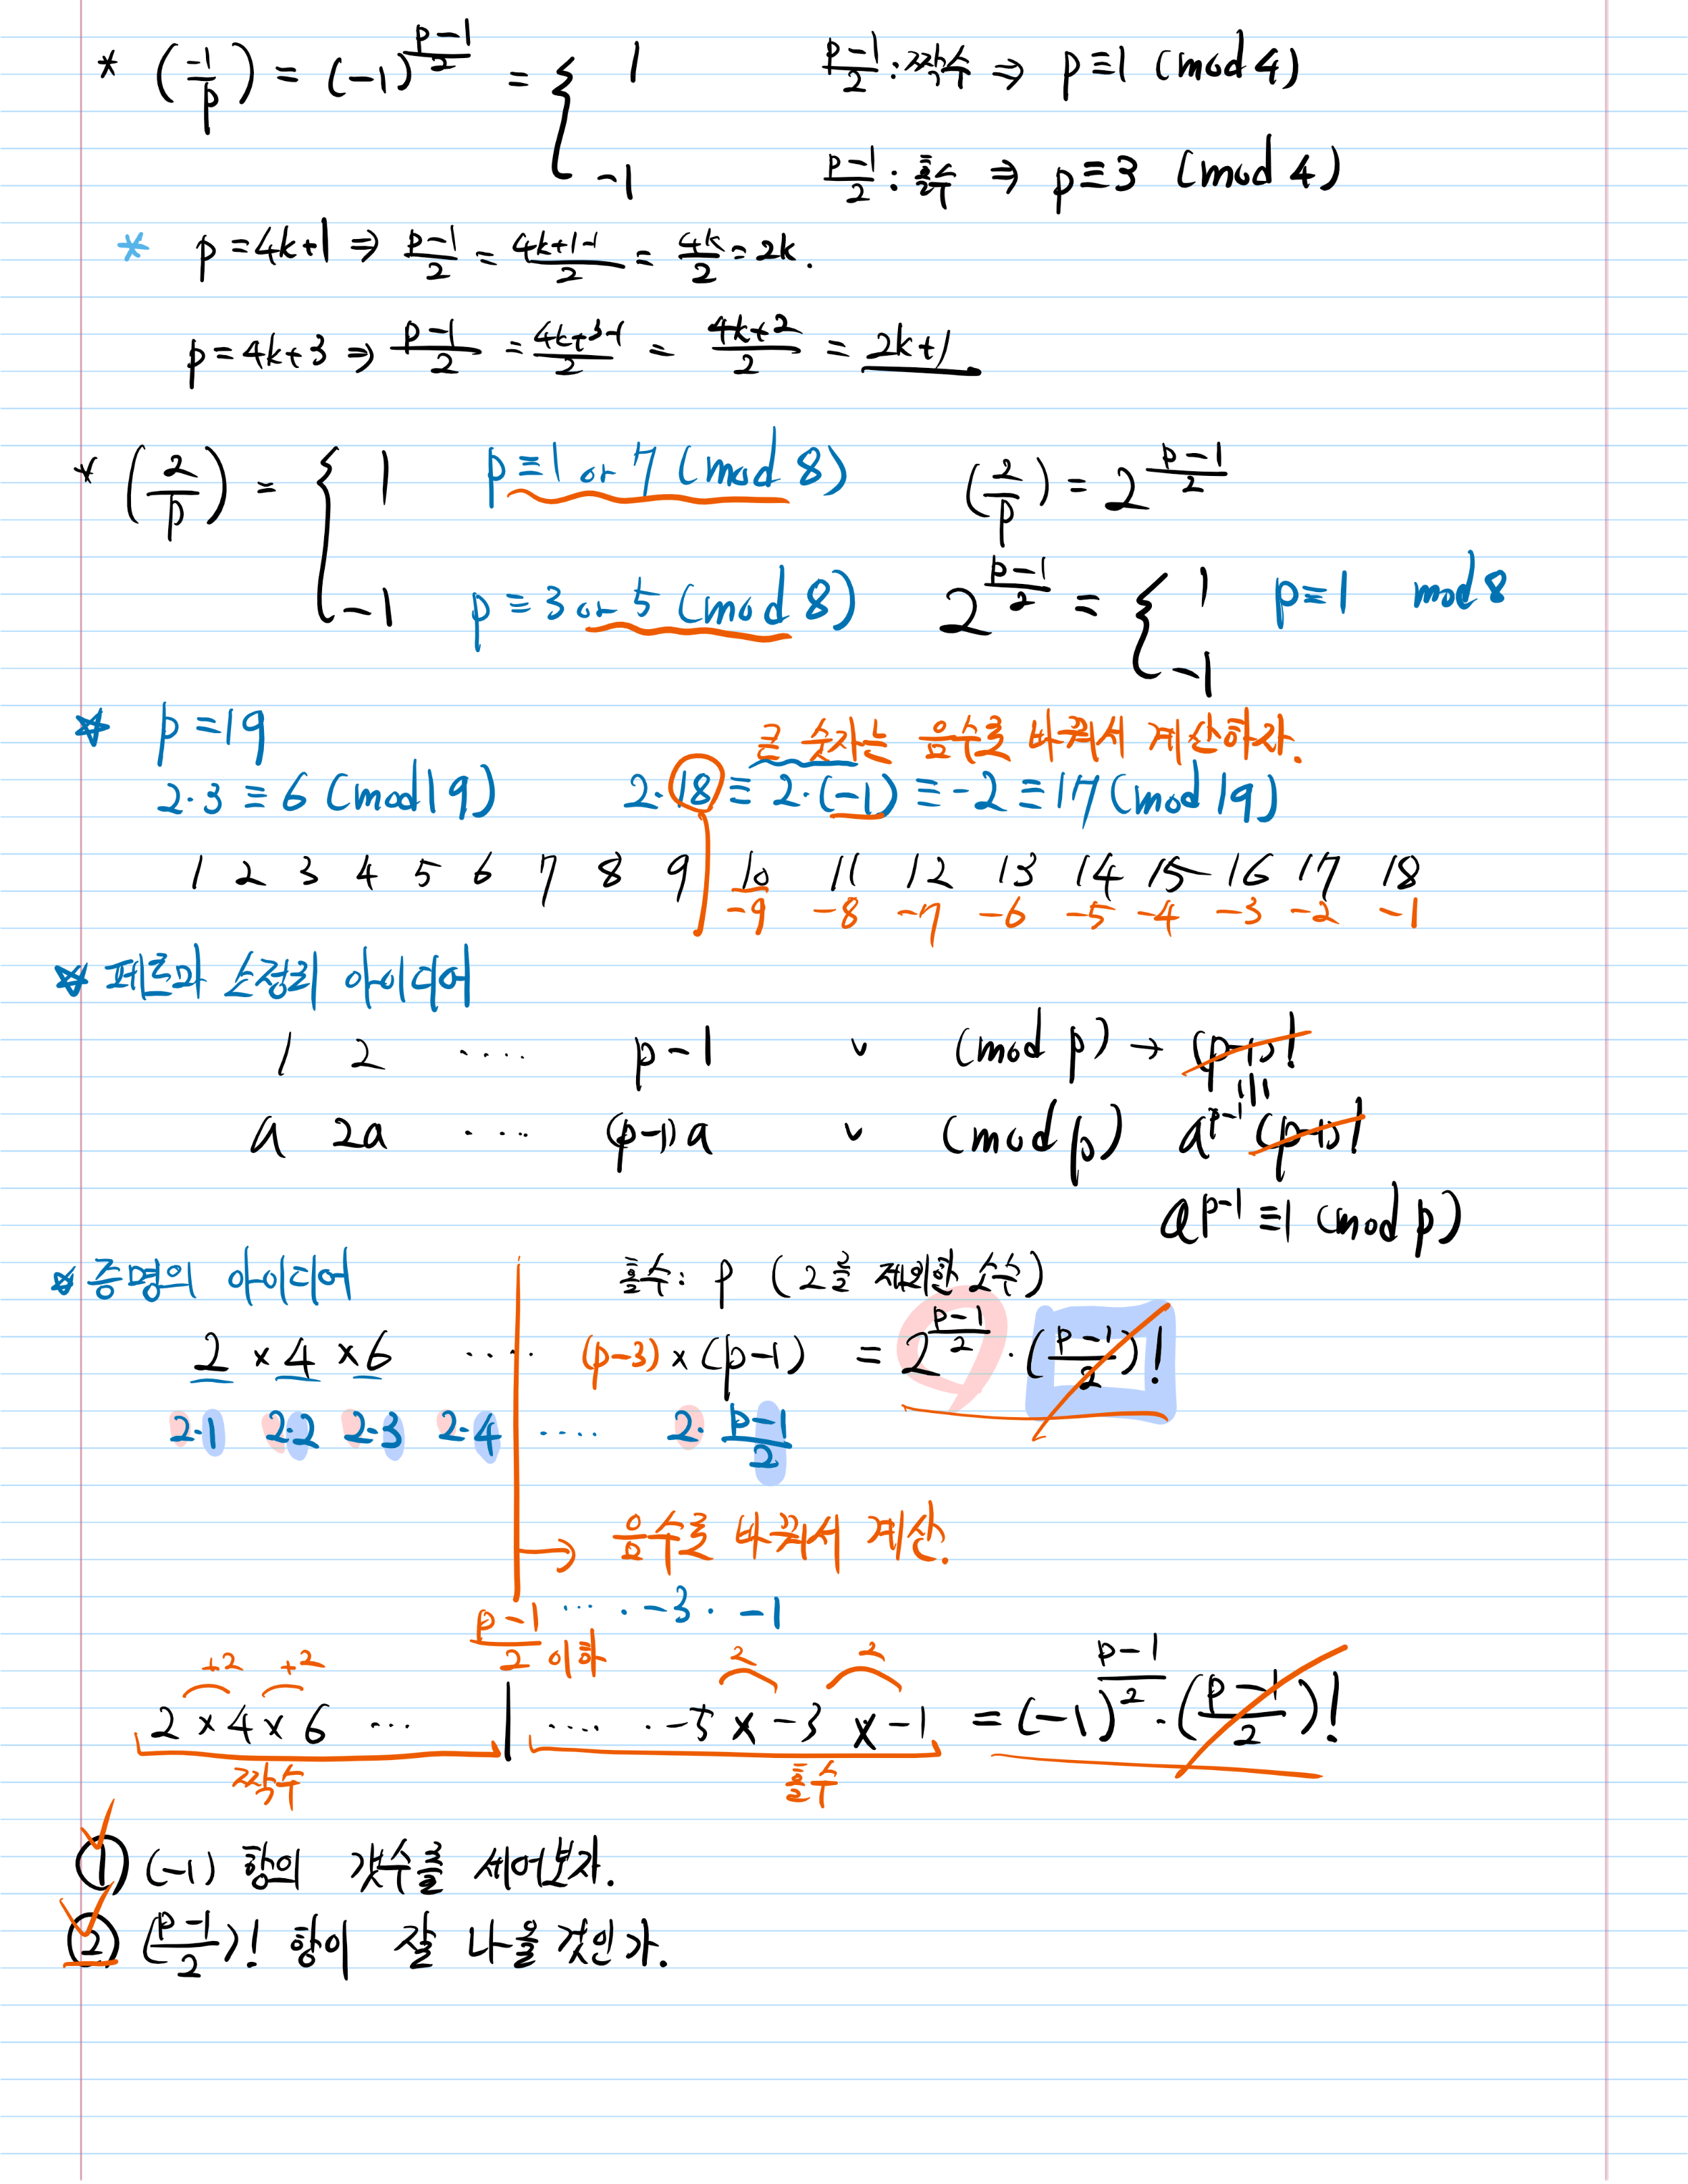 * (-1/p) = (-1)^{(p-1)/2} = { 1 (p-1)/2 : 짝수 ⇒ p≡1 (mod 4)
-1 (p-1)/2 : 홀수 ⇒ p≡3 (mod 4)
* p=4k+1 ⇒ (p-1)/2 = (4k+1-1)/2 = 4k/2 = 2k.
p=4k+3 ⇒ (p-1)/2 = (4k+3-1)/2 = (4k+2)/2 = 2k+1
* (2/p) = { 1 p≡1 or 7 (mod 8) (2/p) = 2^{(p-1)/2}
-1 p≡3 or 5 (mod 8) 2^{(p-1)/2} = { 1 p≡1 mod 8
-1
☆ p=19 큰 숫자는 음수로 바꿔서 계산하자.
2·3≡6 (mod 19) 2·18≡2·(-1)≡-2≡17 (mod 19)
1 2 3 4 5 6 7 8 9 10 11 12 13 14 15 16 17 18
-9 -8 -7 -6 -5 -4 -3 -2 -1
☆ 페르마 소정리 아이디어
1 2 ···· p-1 (mod p) → (p-1)!
≡
a 2a ···· (p-1)a (mod p) a^{p-1} (p-1)!
a^{p-1} ≡1 (mod p)
☆ 증명의 아이디어 홀수: p (2를 제외한 소수)
2 × 4 × 6 ···· (p-3) × (p-1) = 2^{(p-1)/2} · ((p-1)/2)!
2·1 2·2 2·3 2·4 ···· 2· (p-1)/2
→ 음수로 바꿔서 계산.
··· · -3 · -1
(p-1)/2 이하
+2 +2 2 2
2 × 4 × 6 ··· | ···· · -5 × -3 × -1 = (-1)^{(p-1)/2} · ((p-1)/2)!
짝수 홀수
① (-1) 항의 갯수를 세어보자.
② ((p-1)/2)! 항이 잘 나올 것인가.